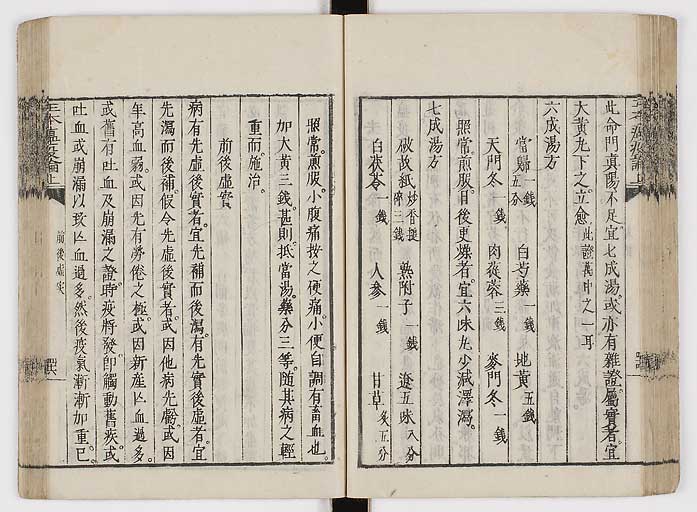 此命門眞陽不足宜七成湯或亦有雜證屬實者宜
大黃丸下之立愈此證萬中之一耳
六成湯方
當歸一錢五分 白芍藥一錢 地黃五錢
天門冬一錢 肉蓯蓉三錢 麥門冬一錢
照常煎服日後更燥者宜六味丸少減澤瀉
七成湯方
破故紙炒香搥碎三錢 熟附子一錢 遼五味八分
白茯苓一錢 人參一錢 甘草炙五分
照常煎服小腹痛按之硬痛小便自調有畜血也
加大黃三錢甚則抵當湯藥分三等隨其病之輕
重而施治
前後虛實
病有先虛後實者宜先補而後瀉有先實後虛者宜
先瀉而後補假令先虛後實者或因他病先虧或因
年高血弱或因先有勞倦之極或因新產亡血過多
或舊有吐血及崩漏之證時疫將發即觸動舊疾或
吐血或崩漏以致亡血過多然後疫氣漸漸加重已
前後虛实